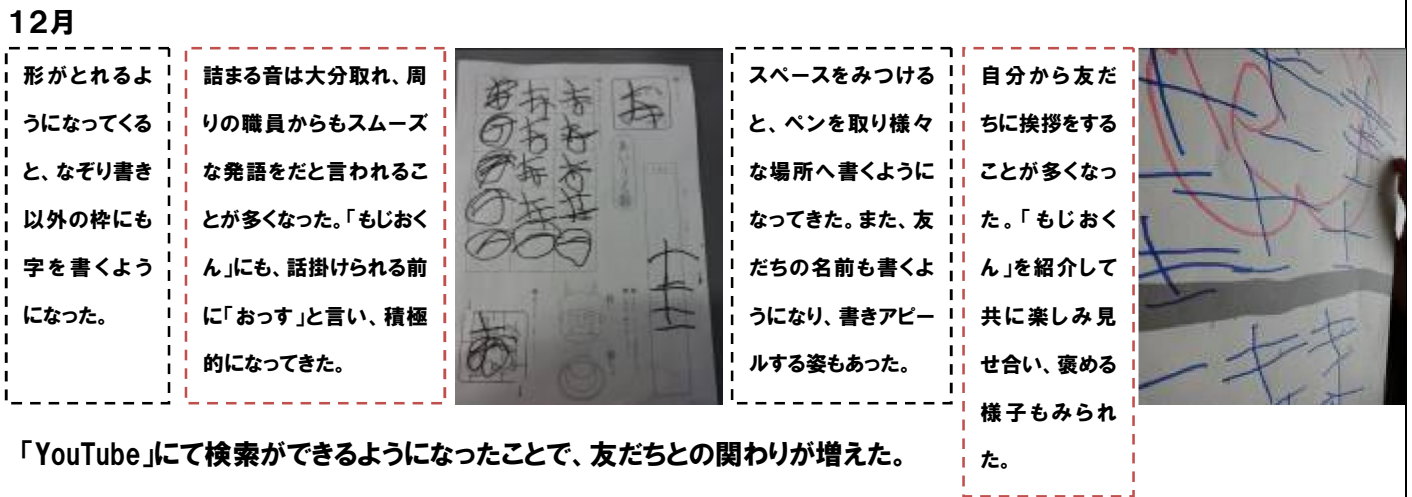 12月
形がとれるよ
うになってくる
と、なぞり書き
以外の枠にも
字を書くよう
になった。
詰まる音は大分取れ、周
りの職員からもスムーズ
な発語をだと言われるこ
とが多くなった。「もじおく
ん」にも、話掛けられる前
に「おっす」と言い、積極
的になってきた。
スペースをみつける
と、ペンを取り様々
な場所へ書くように
なってきた。また、友
だちの名前も書くよ
うになり、書きアピー
ルする姿もあった。
自分から友だ
ちに挨拶をする
ことが多くなっ
た。「もじおく
ん」を紹介して
共に楽しみ見
せ合い、褒める
様子もみられ
た。
「YouTube」にて検索ができるようになったことで、友だちとの関わりが増えた。